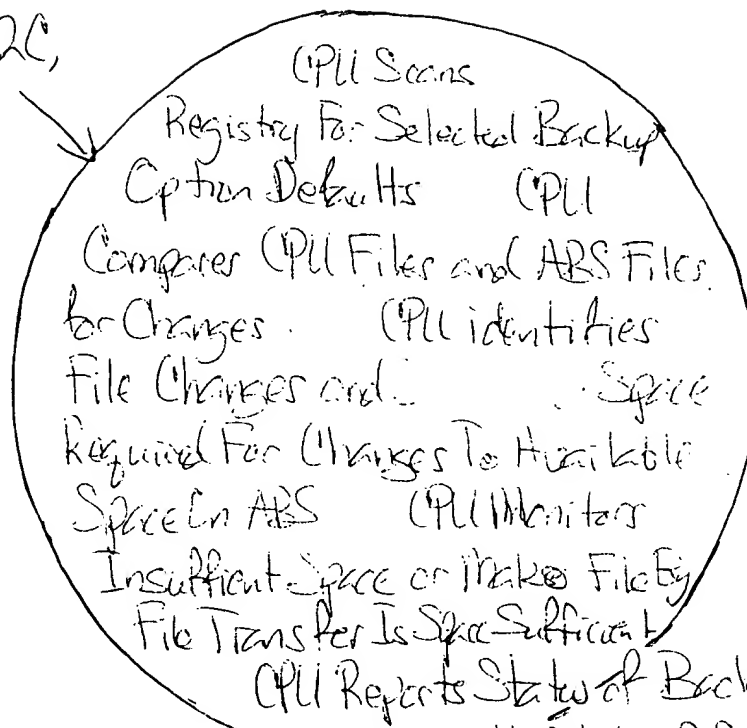 2C,
CPU Scans
Registry For Selected Backup
Option Defaults CPU
Compares CPU Files and ABS Files
for Changes. CPU identifies
File Changes and Space
Required For Changes To Available
Space On ABS CPU Monitors
Insufficient Space or Makes File By
File Transfer Is Space Sufficient
CPU Reports Status of Back